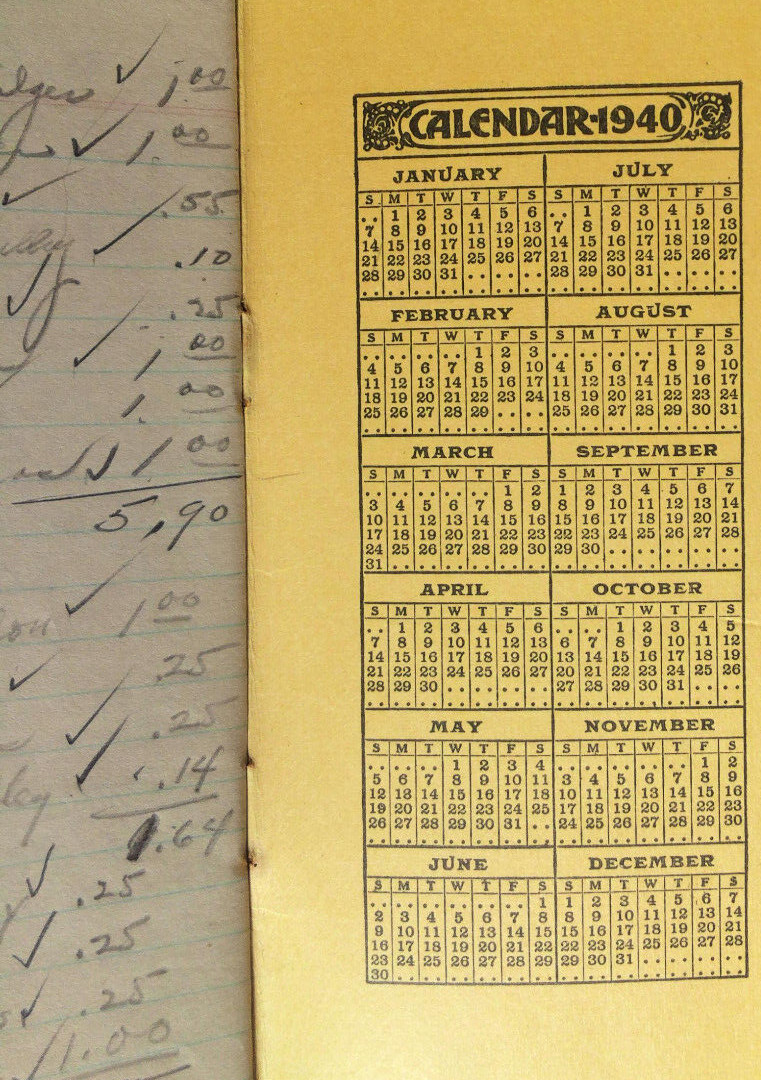 1.00
1.00
.55
.10
.25
1.00
1.00
1.00
5.90
1.00
.25
.25
.14
1.64
.25
.25
.25
1.00
CALENDAR·1940
JANUARY
S M T W T F S
1 2 3 4 5 6
7 8 9 10 11 12 13
14 15 16 17 18 19 20
21 22 23 24 25 26 27
28 29 30 31
FEBRUARY
S M T W T F S
1 2 3
4 5 6 7 8 9 10
11 12 13 14 15 16 17
18 19 20 21 22 23 24
25 26 27 28 29
MARCH
S M T W T F S
1 2
3 4 5 6 7 8 9
10 11 12 13 14 15 16
17 18 19 20 21 22 23
24 25 26 27 28 29 30
31
APRIL
S M T W T F S
1 2 3 4 5 6
7 8 9 10 11 12 13
14 15 16 17 18 19 20
21 22 23 24 25 26 27
28 29 30
MAY
S M T W T F S
1 2 3 4
5 6 7 8 9 10 11
12 13 14 15 16 17 18
19 20 21 22 23 24 25
26 27 28 29 30 31
JUNE
S M T W T F S
1
2 3 4 5 6 7 8
9 10 11 12 13 14 15
16 17 18 19 20 21 22
23 24 25 26 27 28 29
30
JULY
S M T W T F S
1 2 3 4 5 6
7 8 9 10 11 12 13
14 15 16 17 18 19 20
21 22 23 24 25 26 27
28 29 30 31
AUGUST
S M T W T F S
1 2 3
4 5 6 7 8 9 10
11 12 13 14 15 16 17
18 19 20 21 22 23 24
25 26 27 28 29 30 31
SEPTEMBER
S M T W T F S
1 2 3 4 5 6 7
8 9 10 11 12 13 14
15 16 17 18 19 20 21
22 23 24 25 26 27 28
29 30
OCTOBER
S M T W T F S
1 2 3 4 5
6 7 8 9 10 11 12
13 14 15 16 17 18 19
20 21 22 23 24 25 26
27 28 29 30 31
NOVEMBER
S M T W T F S
1 2
3 4 5 6 7 8 9
10 11 12 13 14 15 16
17 18 19 20 21 22 23
24 25 26 27 28 29 30
DECEMBER
S M T W T F S
1 2 3 4 5 6 7
8 9 10 11 12 13 14
15 16 17 18 19 20 21
22 23 24 25 26 27 28
29 30 31